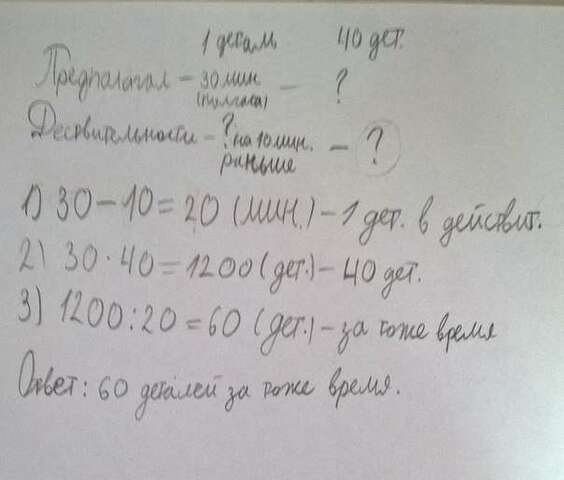 1 деталь 40 дет.
Предполагал – 30 мин – ?
(полчаса)
Дествительности – ? на 10 мин. – ?
раньше
1) 30 – 10 = 20 (мин.) – 1 дет. в действит.
2) 30 · 40 = 1200 (дет.) – 40 дет.
3) 1200 : 20 = 60 (дет.) – за тоже время
Ответ: 60 деталей за тоже время.